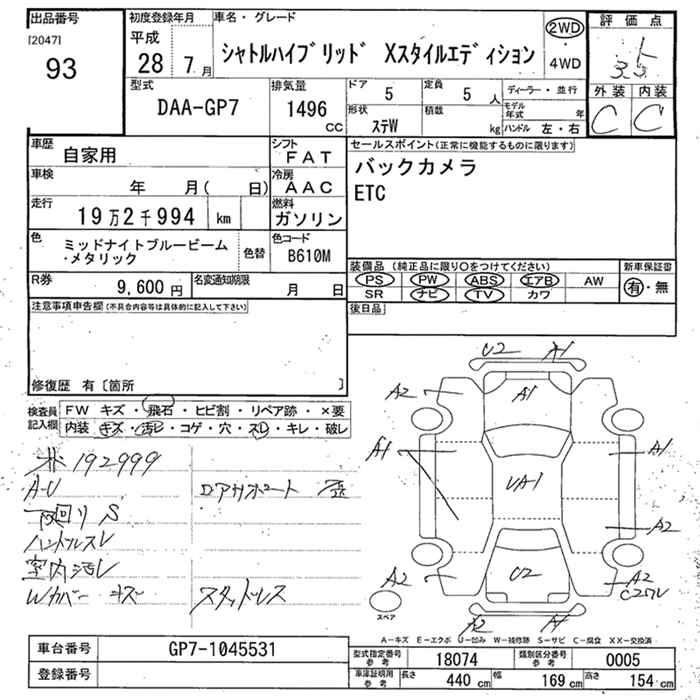 出品番号
[2047]
93
初度登録年月
平成
28 7月
車名・グレード
シャトルハイブリッド Xスタイルエディション
2WD
・
4WD
評価点
3.5
外装 内装
C C
型式
DAA-GP7
排気量
1496
CC
ドア
5
定員
5 人
形状
ステW
積載
kg
ディーラー・並行
モデル
年式 年
ハンドル 左・右
車歴
自家用
シフト
FAT
車検
年 月( 日)
冷房
AAC
走行
19万2千994 km
燃料
ガソリン
色
ミッドナイトブルービーム
・メタリック
色替
色コード
B610M
R券
9,600 円
名変通知期限
月 日
セールスポイント(正常に機能するものに限ります)
バックカメラ
ETC
装備品 (純正品に限り○をつけてください)
PS PW ABS エアB AW
SR ナビ TV カワ
新車保証書
有・無
後日品
注意事項申告欄(不具合内容等は具体的に記入して下さい)
修復歴 有〔箇所 〕
検査員
記入欄
FW キズ・飛石・ヒビ割・リペア跡・×要
内装 キズ・汚レ・コゲ・穴・スレ・キレ・破レ
192999
A-U
下回り S
ハンドルスレ
室内汚レ
Wカバー キズ
スタッドレス
U2 A1
A2 A1
A1 A1
UA1
A2
A2 U2 A2
A2 A1
スペア
A-キズ E-エクボ U-凹み W-補修跡 S-サビ C-腐食 XX-交換済
車台番号
GP7-1045531
登録番号
型式指定番号
参考
18074
類別区分番号
参考
0005
車庫証明用
参考
長さ
440 cm
幅
169 cm
高さ
154 cm